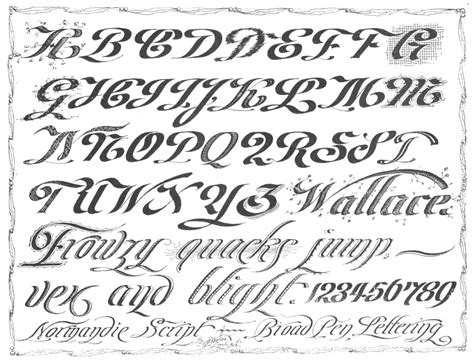 A B C D D E F F G
G H I I J K L M M
N N O P Q Q R S S T
T U W X Y Z Wallace.
Frowzy quacks jump
vex and blight. 1234567890
Normandie Script Broad Pen Lettering